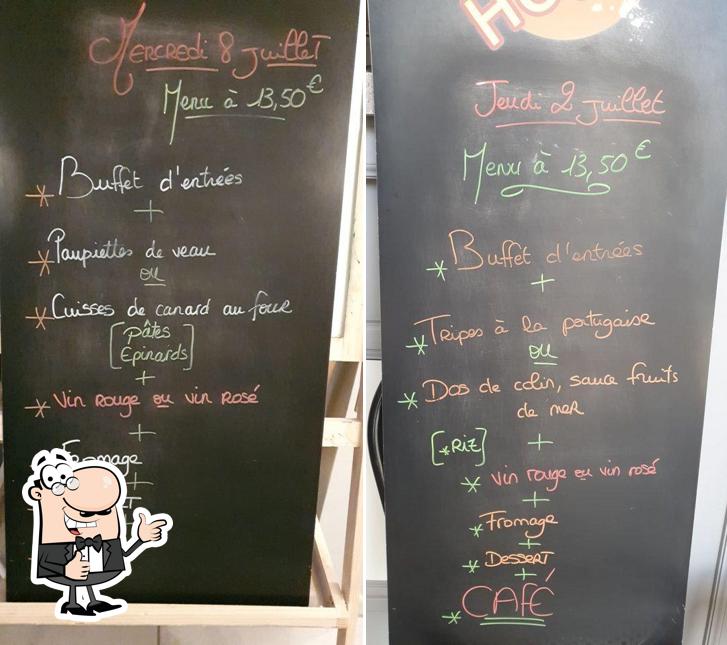 Mercredi 8 juillet
Menu à 13,50€
* Buffet d'entrées
+
* Paupiettes de veau
ou
* Cuisses de canard au four
[Pâtes
Epinards]
+
* Vin rouge ou vin rosé
+
Fromage
+
Jeudi 2 juillet
Menu à 13,50€
* Buffet d'entrées
+
* Tripes à la portugaise
ou
* Dos de colin, sauce fruits
de mer
[*Riz] +
* vin rouge ou vin rosé
+
* Fromage
+
* Dessert
+
* CAFÉ